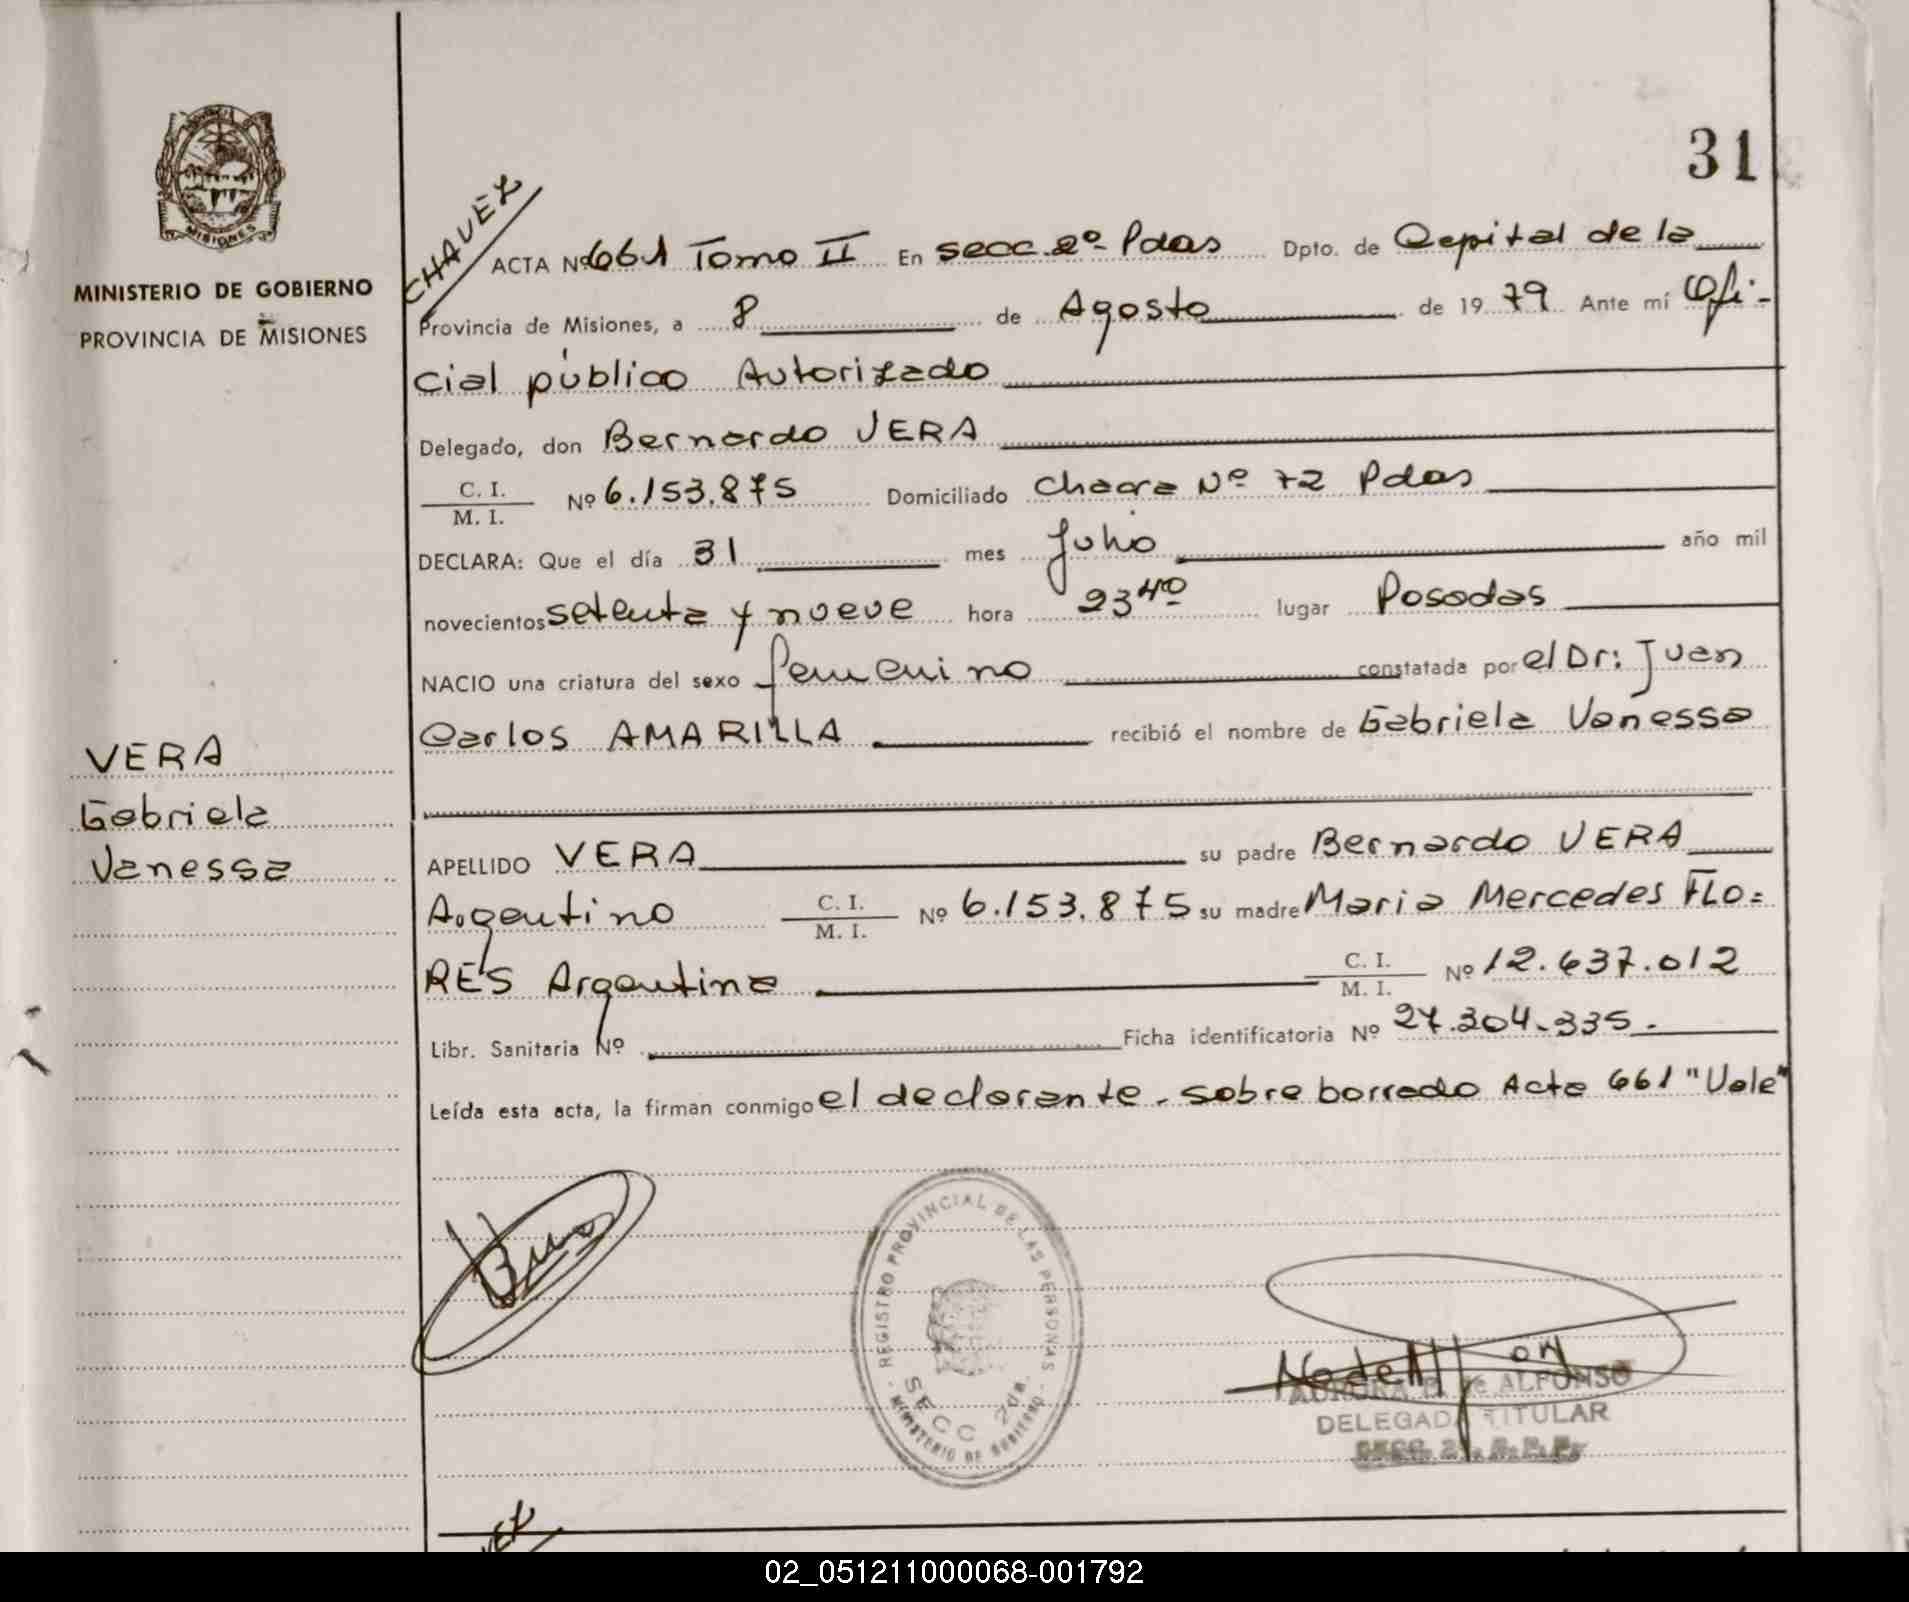 31
MINISTERIO DE GOBIERNO
PROVINCIA DE MISIONES
MISIONES
CHAVEZ
ACTA Nº 661 Tomo II En secc. 2º Pdas Dpto. de Capital de la
Provincia de Misiones, a 8 de Agosto de 1979 Ante mí Ofi-
cial público Autorizado
Delegado, don Bernardo VERA
C. I.
M. I. Nº 6.153.875 Domiciliado Chacra Nº 72 Pdas
DECLARA: Que el día 31 mes Julio año mil
novecientos setenta y nueve hora 23 40 lugar Posadas
NACIO una criatura del sexo femenino constatada por el Dr: Juan
Carlos AMARILLA recibió el nombre de Gabriela Vanessa
VERA
Gabriela
Vanessa
APELLIDO VERA su padre Bernardo VERA
Argentino C. I.
M. I. Nº 6.153.875 su madre Maria Mercedes FLO=
RES Argentina C. I.
M. I. Nº 12.637.012
Libr. Sanitaria Nº Ficha identificatoria Nº 27.304.335.-
Leída esta acta, la firman conmigo el declarante. sobre borrado Acta 661 "Vale"
REGISTRO PROVINCIAL DE LAS PERSONAS
SECC 2da.
MINISTERIO DE GOBIERNO
AURORA de ALFONSO
DELEGADA TITULAR
02_051211000068-001792